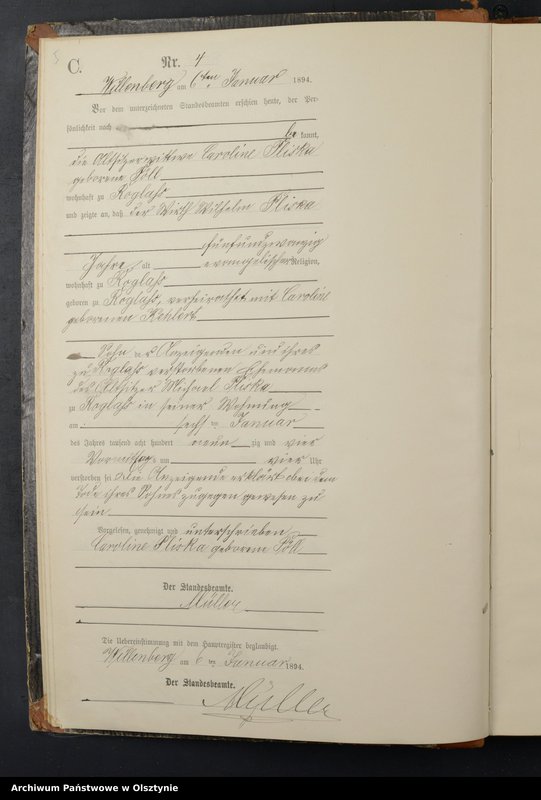 C.
Nr. 4
Willenberg am 6ten Januar 1894.
Vor dem unterzeichneten Standesbeamten erschien heute, der Per-
sönlichkeit nach
be kannt,
die Altsitzerwittwe Caroline Pliska
geborene Söll
wohnhaft zu Roglass
und zeigte an, daß der Wirth Wilhelm Pliska
fünfundzwanzig
Jahre alt evangelischer Religion,
wohnhaft zu Roglass
geboren zu Roglass, verheirathet mit Caroline
geborenen Kehlert
Sohn der Anzeigenden und ihres
zu Roglass verstorbenen Ehemanns
des Altsitzer Michael Pliska
zu Roglass in seiner Wohnung
am sechsten Januar
des Jahres tausend acht hundert neun zig und vier
Vormittags um vier Uhr
verstorben sei. Die Anzeigende erklärt bei dem
Tode ihres Sohnes zugegen gewesen zu
sein
Vorgelesen, genehmigt und unterschrieben
Caroline Pliska geborene Söll
Der Standesbeamte.
Müller
Die Uebereinstimmung mit dem Hauptregister beglaubigt.
Willenberg am 6ten Januar 1894.
Der Standesbeamte.
Müller
Archiwum Państwowe w Olsztynie